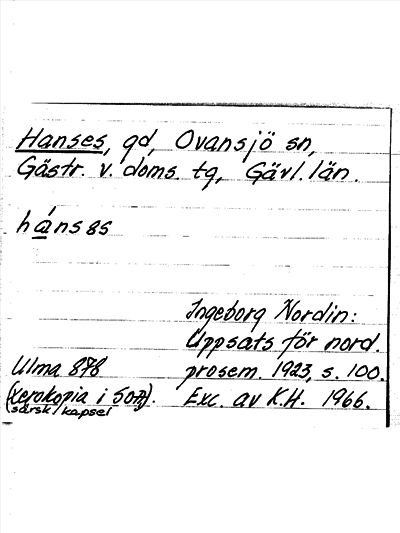 Hanses, gd, Ovansjö sn,
Gästr. v. doms. tg, Gävl. län.
Ingeborg Nordin:
Uppsats för nord.
Ulma 878 prosem. 1923, s. 100.
(xerokopia i SOA). Exc. av K.H. 1966.
särsk. kapsel